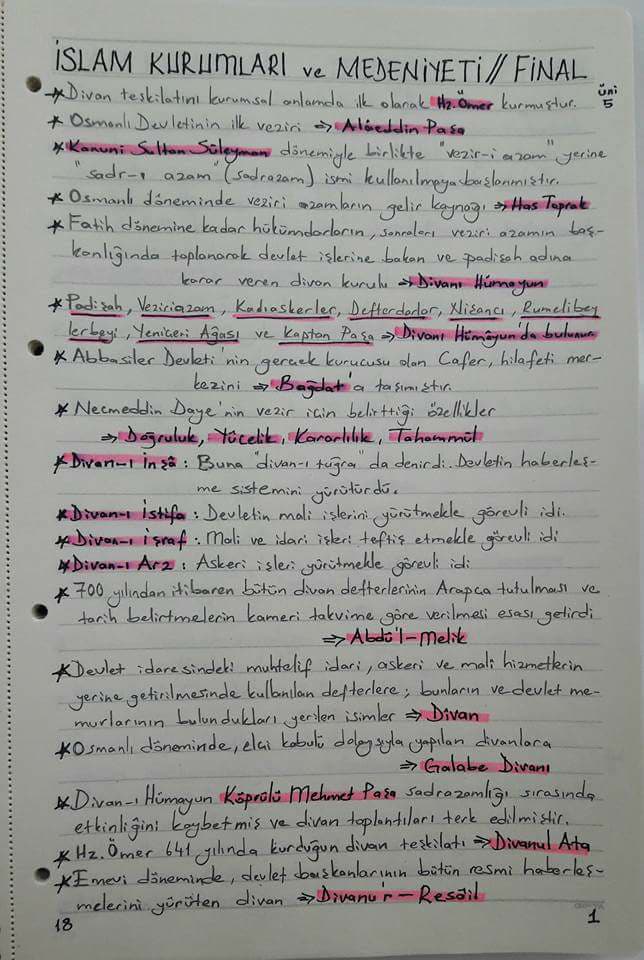 İSLAM KURUMLARI ve MEDENİYETİ // FİNAL
üni 5
* Divan teşkilatını kurumsal anlamda ilk olarak Hz. Ömer kurmuştur.
* Osmanlı Devletinin ilk veziri ⇒ Alâeddin Paşa
* Kanuni Sultan Süleyman dönemiyle birlikte "vezir-i azam" yerine
"sadr-ı azam" (sadrazam) ismi kullanılmaya başlanmıştır.
* Osmanlı döneminde veziri azamların gelir kaynağı ⇒ Has Toprak
* Fatih dönemine kadar hükümdarların, sonraları veziri azamın baş-
kanlığında toplanarak devlet işlerine bakan ve padişah adına
karar veren divan kurulu ⇒ Divanı Hümayun
* Padişah, Veziriazam, Kadıaskerler, Defterdarlar, Nişancı, Rumelibey
lerbeyi, Yeniçeri Ağası ve Kaptan Paşa ⇒ Divanı Hümâyun'da bulunur
* Abbasiler Devleti'nin gerçek kurucusu olan Cafer, hilafeti mer-
kezini ⇒ Bağdat'a taşımıştır.
* Necmeddin Daye'nin vezir için belirttiği özellikler
⇒ Doğruluk, Yücelik, Kararlılık, Tahammül
* Divan-ı İnşâ : Buna "divan-ı tuğra" da denirdi. Devletin haberleş-
me sistemini yürütürdü.
* Divan-ı İstifa : Devletin mali işlerini yürütmekle görevli idi.
* Divan-ı İşraf : Mali ve idari işleri teftiş etmekle görevli idi
* Divan-ı Arz : Askeri işleri yürütmekle görevli idi
* 700 yılından itibaren bütün divan defterlerinin Arapça tutulması ve
tarih belirtmelerin kameri takvime göre verilmesi esası getirdi
⇒ Abdü'l-Melik
* Devlet idaresindeki muhtelif idari, askeri ve mali hizmetlerin
yerine getirilmesinde kullanılan defterlere; bunların ve devlet me-
murlarının bulundukları yerilen isimler ⇒ Divan
* Osmanlı döneminde, elçi kabulü dolayısıyla yapılan divanlara
⇒ Galabe Divanı
* Divan-ı Hümayun Köprülü Mehmet Paşa sadrazamlığı sırasında
etkinliğini kaybetmiş ve divan toplantıları terk edilmiştir.
* Hz. Ömer 641 yılında kurduğun divan teşkilatı ⇒ Divanul Ata
* Emevi döneminde, devlet başkanlarının bütün resmi haberleş-
melerini yürüten divan ⇒ Divanu'r-Resâil
18
1